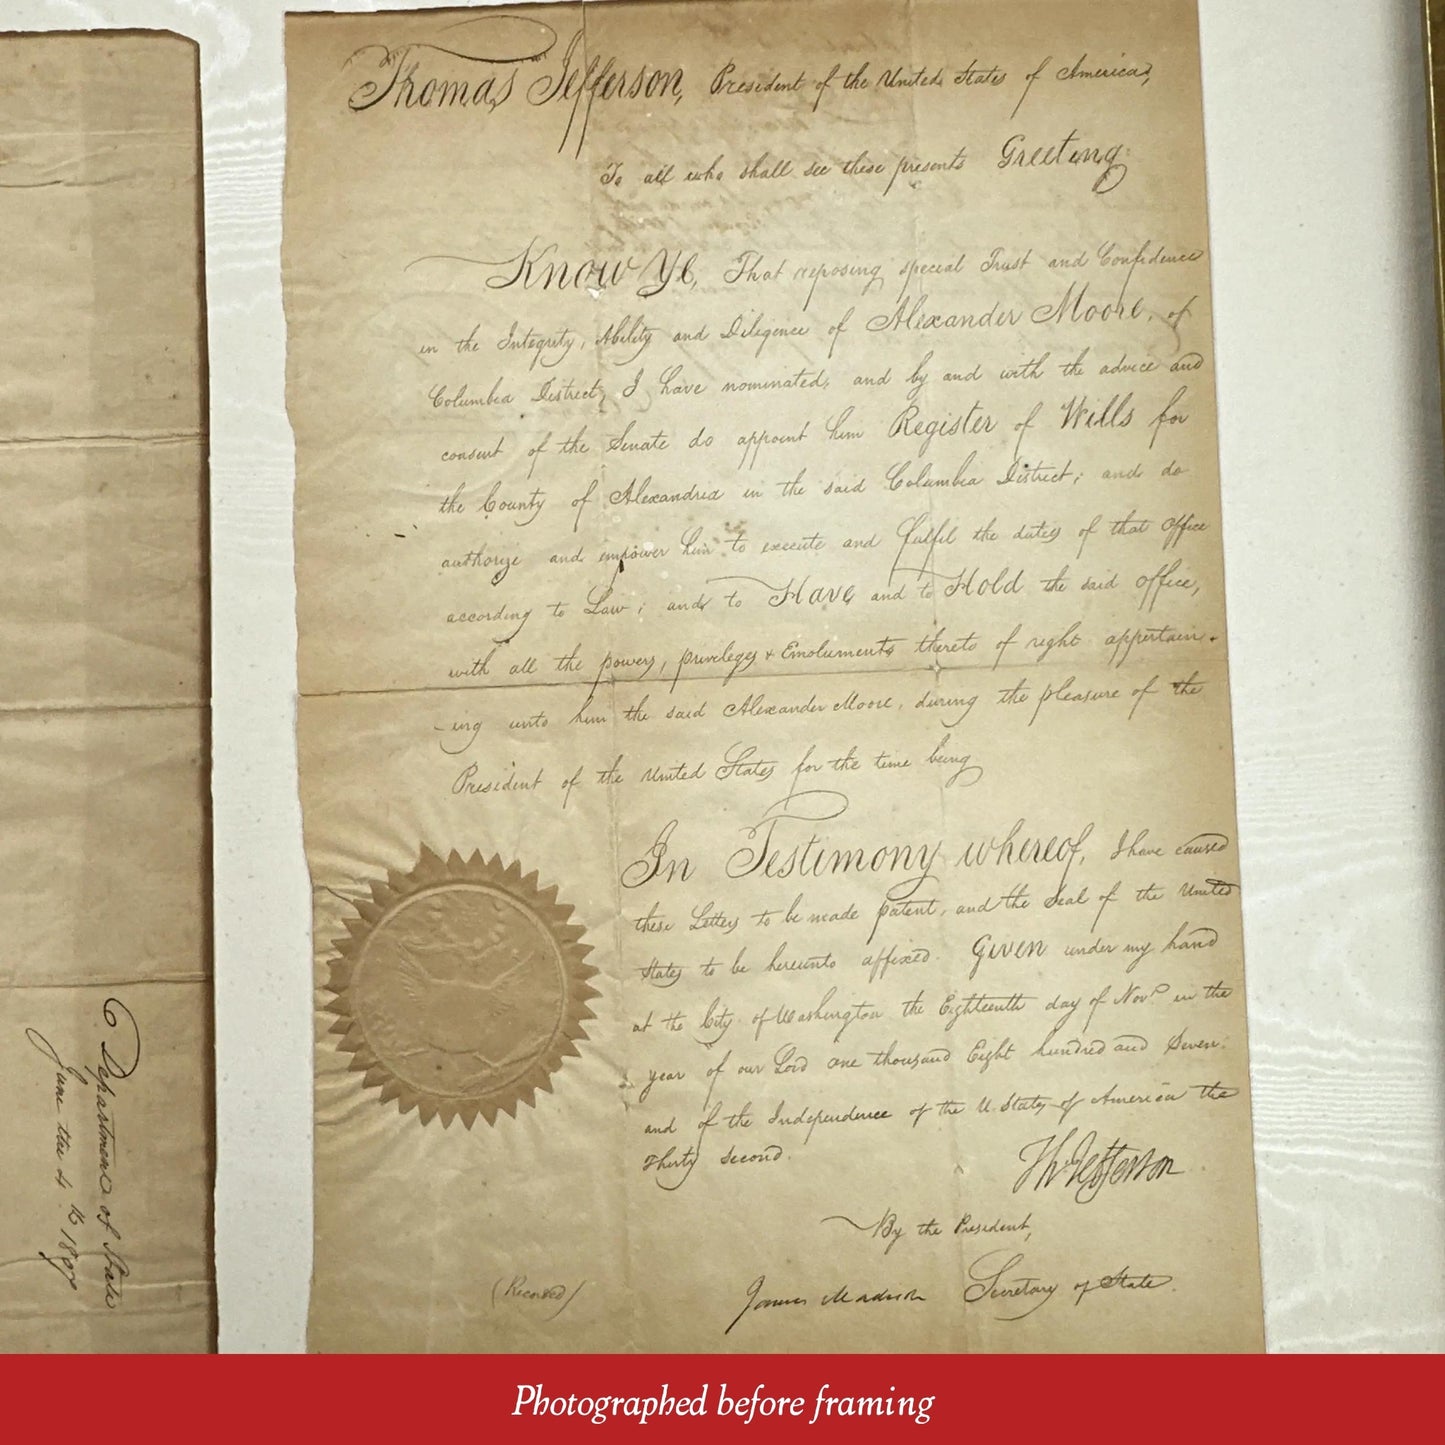 Thomas Jefferson, President of the United States of America,
To all who shall see these presents Greeting:
Know Ye, That reposing special Trust and Confidence
in the Integrity, Ability and Diligence of Alexander Moore, of
Columbia District, I have nominated, and by and with the advice and
consent of the Senate do appoint him Register of Wills for
the County of Alexandria in the said Columbia District; and do
authorize and empower him to execute and fulfil the duties of that office
according to Law; and to Have and to Hold the said office,
with all the powers, privileges & Emoluments thereto of right appertain-
-ing unto him the said Alexander Moore, during the pleasure of the
President of the United States for the time being
In Testimony whereof, I have caused
these Letters to be made patent, and the Seal of the United
States to be hereunto affixed. Given under my hand
at the City of Washington the Eighteenth day of Novr. in the
year of our Lord one thousand Eight hundred and Seven:
and of the Independence of the U. States of America the
Thirty Second.
Th: Jefferson
By the President,
James Madison Secretary of State.
(Recorded)
Department of State
June the 4th
Photographed before framing